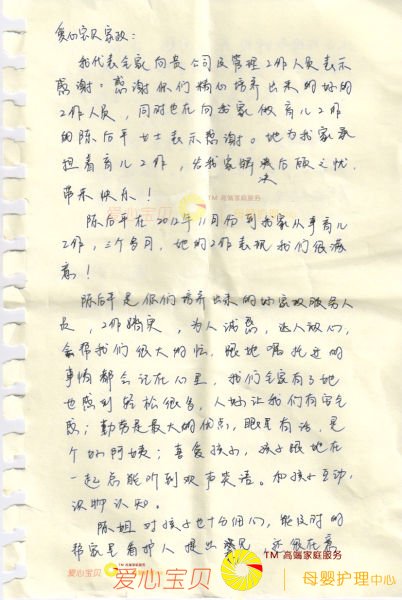 爱心宝贝家政:
我代表全家向贵公司及管理工作人员表示
感谢。感谢你们精心培养出来的好的
工作人员,同时也在向我家做育儿工作
的陈后平女士表示感谢。她为我家承
担着育儿工作,给我家解决后顾之忧,
带来快乐!
TM 高端家庭服务
爱心宝贝
陈后平在2012年11月份到我家从事育儿
工作,三个多月,她的工作表现我们很满
意!
陈后平是你们培养出来的好家政服务人
员,工作踏实,为人诚恳,达人放心,
会帮我们很大的忙,跟她嘱托过的
事情都会记在心里,我们全家有了她
也感到轻松很多,人好让我们有安全
感;勤劳是最大的优点,眼里有活,是
个好阿姨;喜爱孩子,孩子跟她在
一起总能听到欢声笑语。和孩子互动,
识物认知。
陈姐对孩子也十分细心,能及时的
帮家里看护人提出意见,还很在意
TM 高端家庭服务
爱心宝贝 母婴护理中心